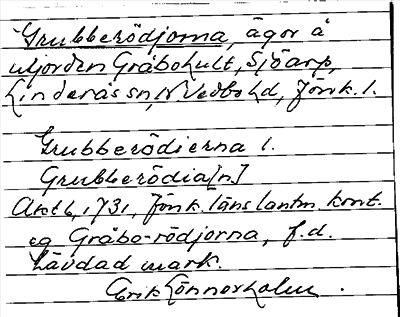 Grubberödjorna, ägor å
utjorden Gråbohult, Sjöarp,
Linderås sn, N Vedbo hd, Jönk. l.
Grubberödierna l.
Grubberödia[n]
Akt 6, 1731, Jönk. läns lantm. kont.
eg Gråbo-rödjorna, f.d.
hävdad mark.
Erik Lönnerholm.